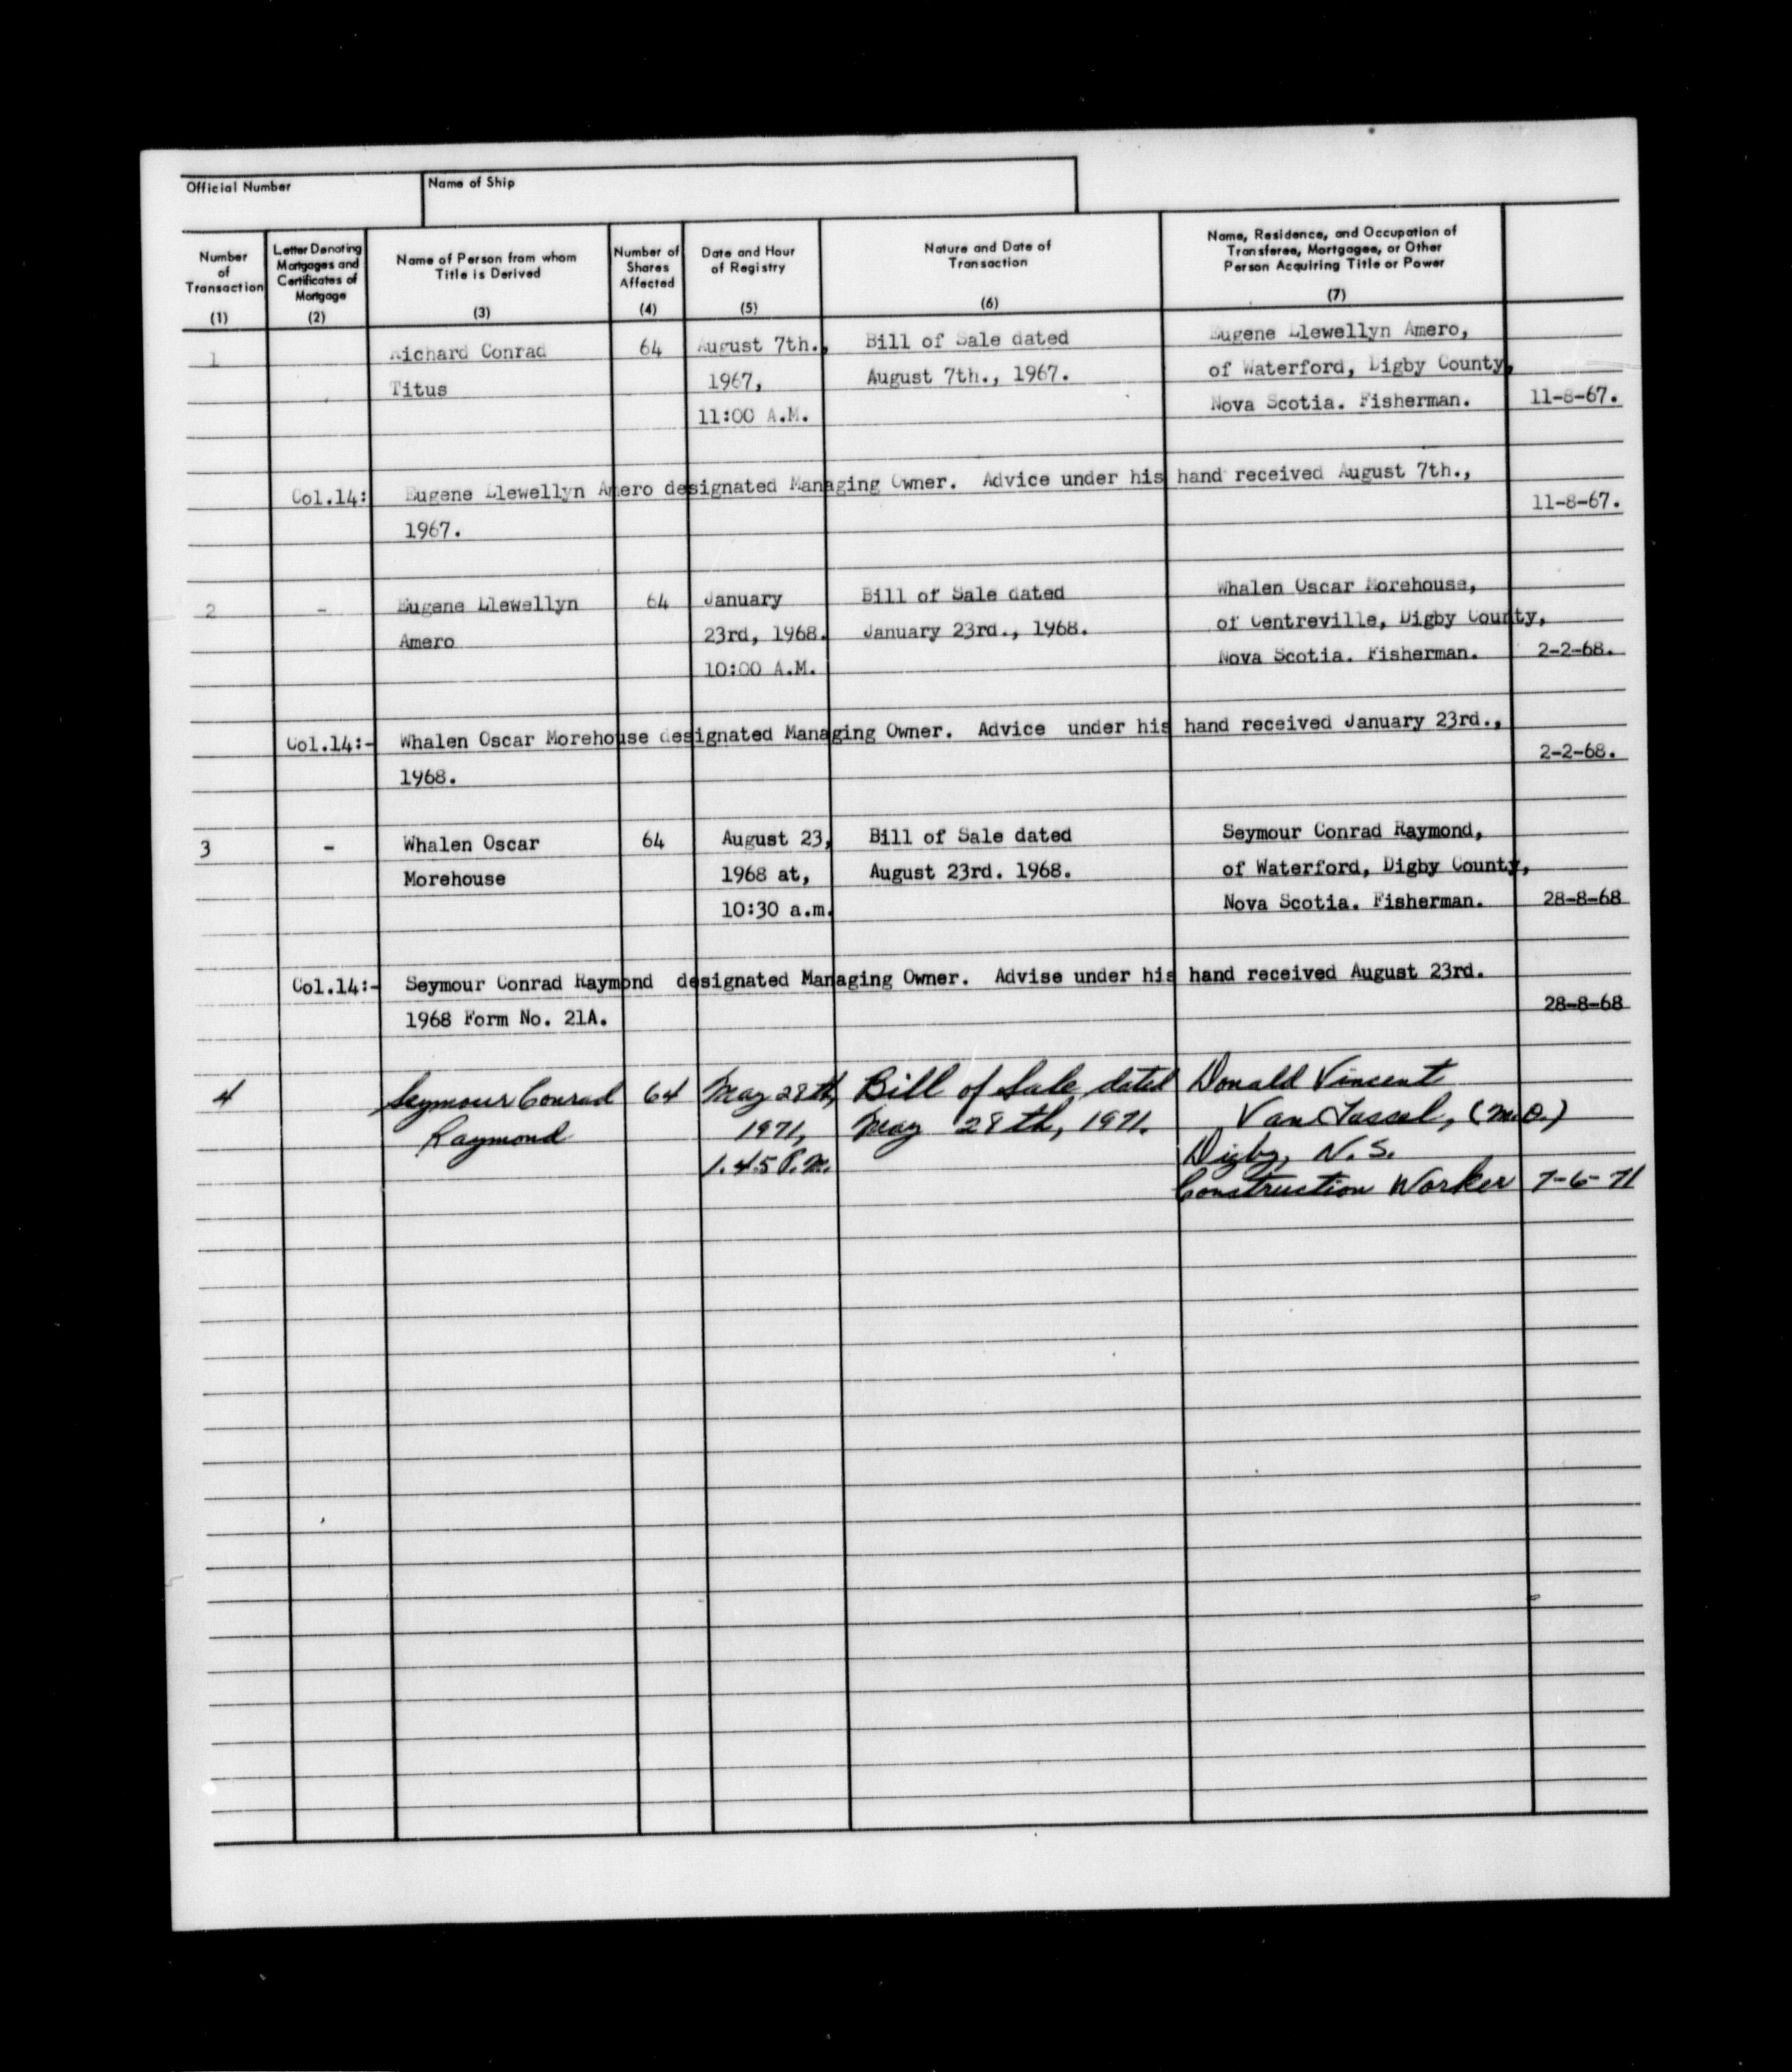 Official Number
Name of Ship
Number of Transaction (1)
Letter Denoting Mortgages and Certificates of Mortgage (2)
Name of Person from whom Title is Derived (3)
Number of Shares Affected (4)
Date and Hour of Registry (5)
Nature and Date of Transaction (6)
Name, Residence, and Occupation of Transferee, Mortgagee, or Other Person Acquiring Title or Power (7)
1 Richard Conrad 64 August 7th., Bill of Sale dated Eugene Llewellyn Amero,
Titus 1967, August 7th., 1967. of Waterford, Digby County,
11:00 A.M. Nova Scotia. Fisherman. 11-8-67.
Col.14: Eugene Llewellyn Amero designated Managing Owner. Advice under his hand received August 7th.,
1967. 11-8-67.
2 - Eugene Llewellyn 64 January Bill of Sale dated Whalen Oscar Morehouse,
Amero 23rd, 1968. January 23rd., 1968. of Centreville, Digby County,
10:00 A.M. Nova Scotia. Fisherman. 2-2-68.
Col.14:- Whalen Oscar Morehouse designated Managing Owner. Advice under his hand received January 23rd.,
1968. 2-2-68.
3 - Whalen Oscar 64 August 23, Bill of Sale dated Seymour Conrad Raymond,
Morehouse 1968 at, August 23rd. 1968. of Waterford, Digby County,
10:30 a.m. Nova Scotia. Fisherman. 28-8-68
Col.14:- Seymour Conrad Raymond designated Managing Owner. Advise under his hand received August 23rd.
1968 Form No. 21A. 28-8-68
4 Seymour Conrad 64 May 28th, Bill of Sale dated Donald Vincent
Raymond 1971, May 28th, 1971. Van Tassel, (M.O.)
1.45 P.M. Digby, N.S.
Construction Worker 7-6-71